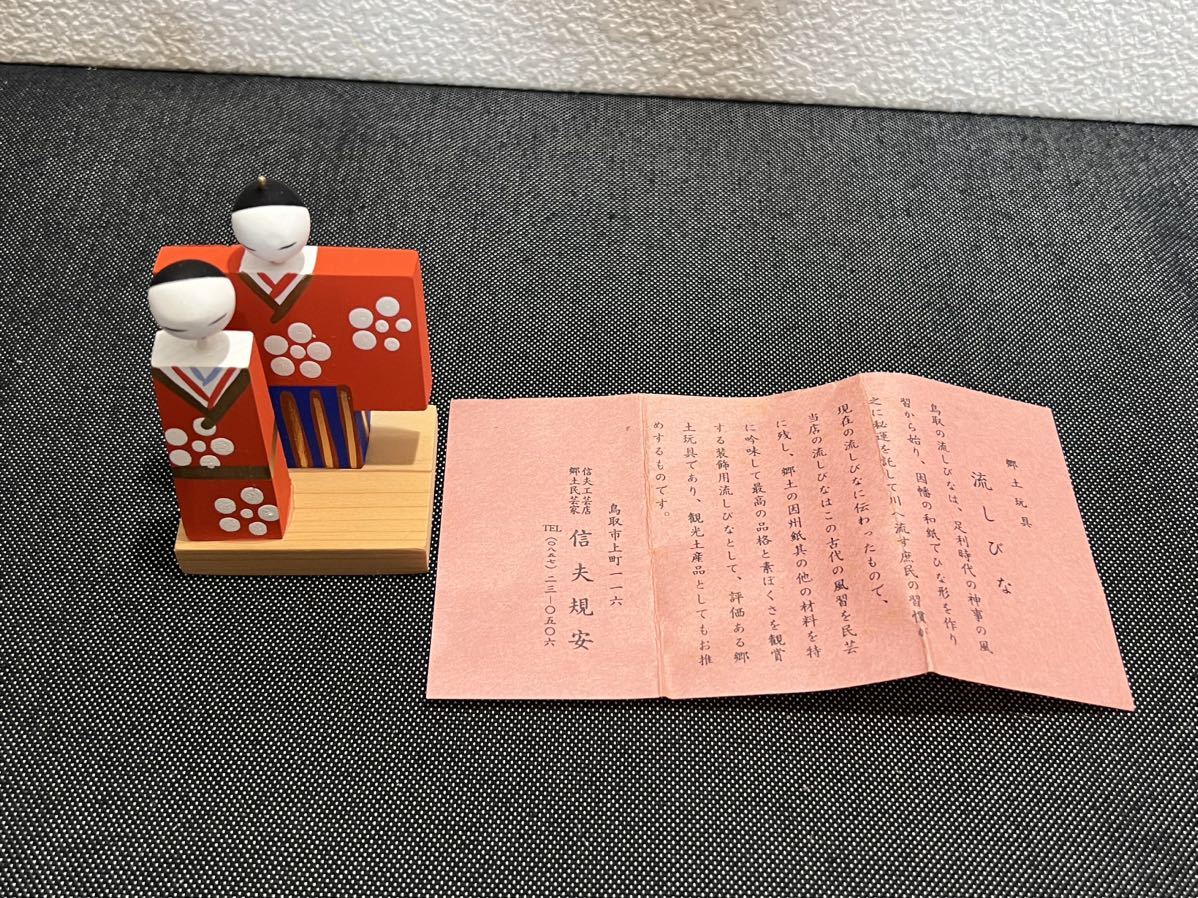 郷土玩具
流しびな
鳥取の流しびなは、足利時代の神事の風
習から始り、因幡の和紙でひな形を作り
之に秘運を託して川へ流す庶民の習慣が
現在の流しびなに伝わったもので、
当店の流しびなはこの古代の風習を民芸
に残し、郷土の因州紙具の他の材料を特
に吟味して最高の品格と素ぼくさを観賞
する装飾用流しびなとして、評価ある郷
土玩具であり、観光土産品としてもお推
めするものです。
鳥取市上町一一六
信夫工芸店
郷土民芸家
信夫規安
TEL(〇八五七)二三-〇五〇六